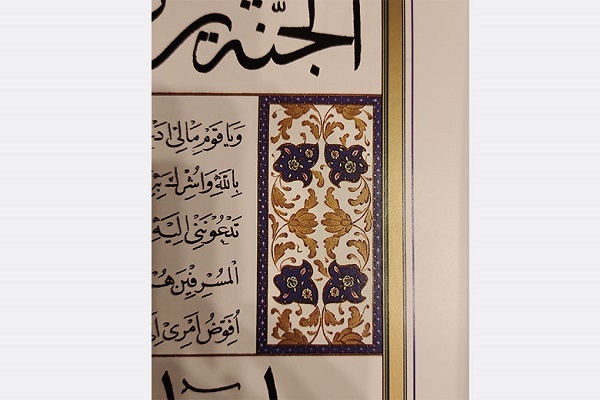 الجَنَّةَ
وَيَا قَوْمِ مَالِيَ
بِاللّٰهِ وَاُشْرِكَ
تَدْعُونَنِي اِلَيْهِ
الْمُسْرِفِينَ هُمْ
اُفَوِّضُ اَمْرِي